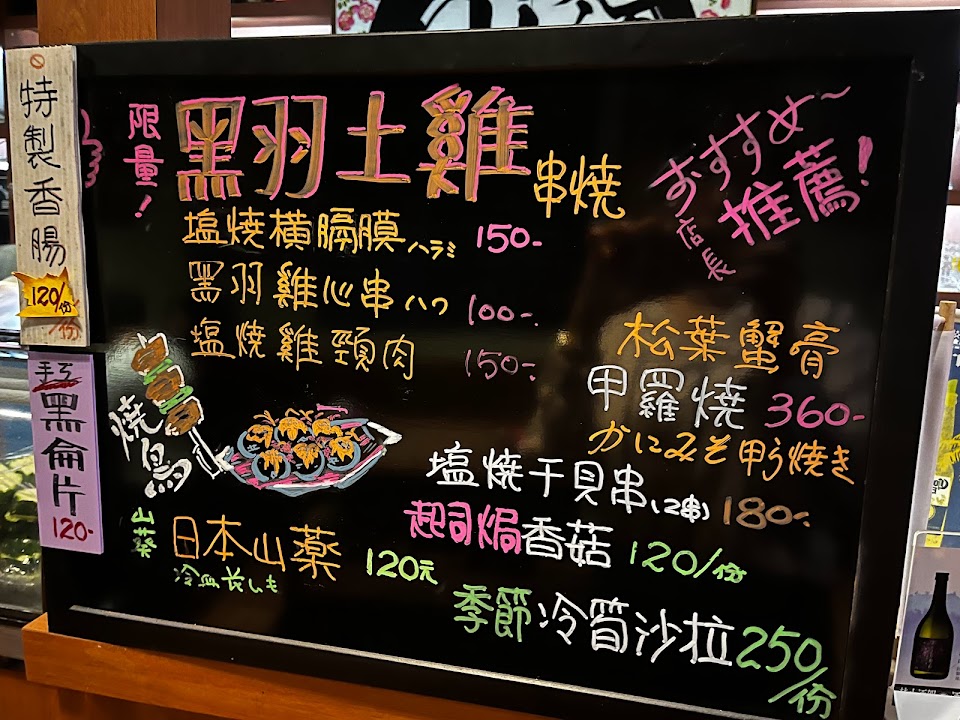 特製香腸
120/份
/份
手工
黑侖片
120-
限量!
黑羽土雞
串焼
おすすめ~
店長
推薦!
塩焼橫膈膜ハラミ 150-
黑羽雞心串ハツ 100-
塩焼雞頸肉 150-
焼鳥
松葉蟹膏
甲羅焼 360-
かにみそ甲ら焼き
塩焼干貝串(2串) 180-
起司焗香菇 120/份
山薬
日本山薬 120元
冷血長いも
季節冷筍沙拉250/份